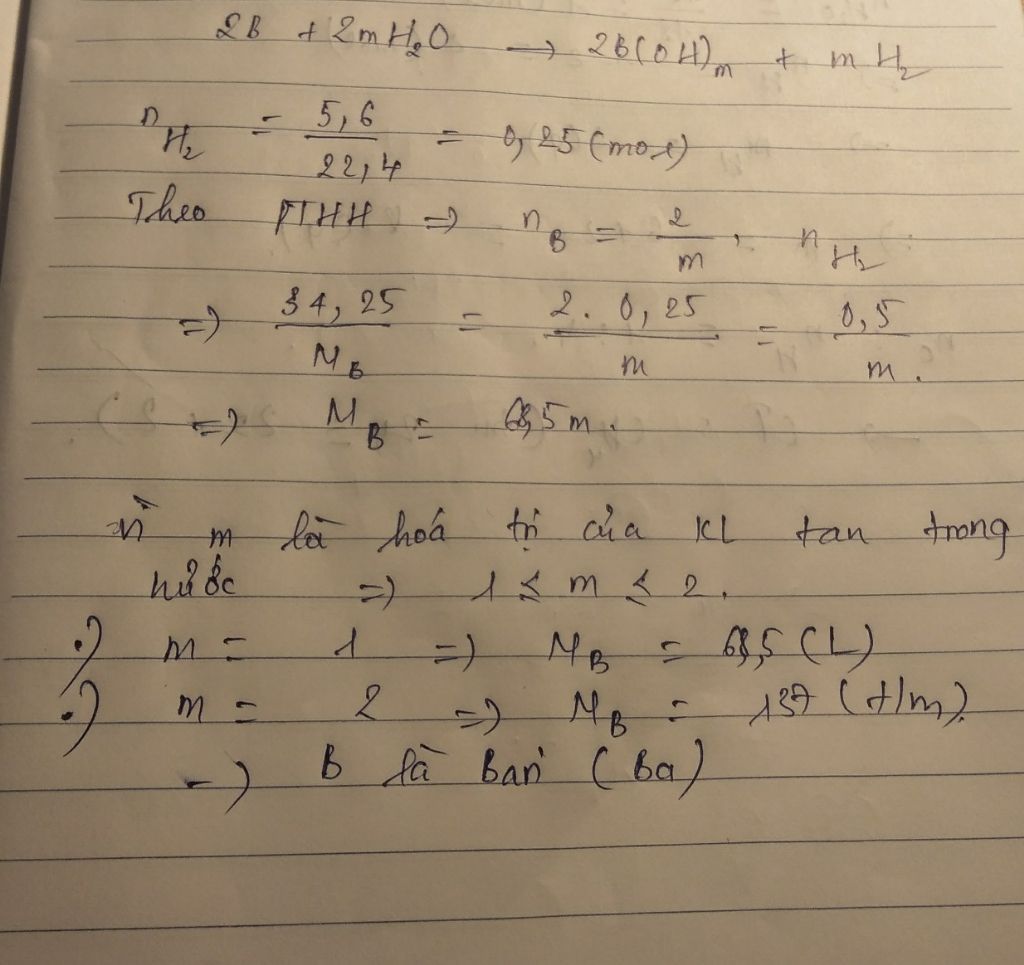 2B + 2mH₂O → 2B(OH)ₘ + mH₂
n_H₂ = 5,6/22,4 = 0,25 (mol)
Theo PTHH => n_B = 2/m . n_H₂
=> 34,25/M_B = 2.0,25/m = 0,5/m.
=> M_B = 68,5m.
Vì m là hoá trị của KL tan trong
nước => 1 ≤ m ≤ 2.
•) m = 1 => M_B = 68,5 (L)
•) m = 2 => M_B = 137 (t/m).
-) B là Bari (Ba)